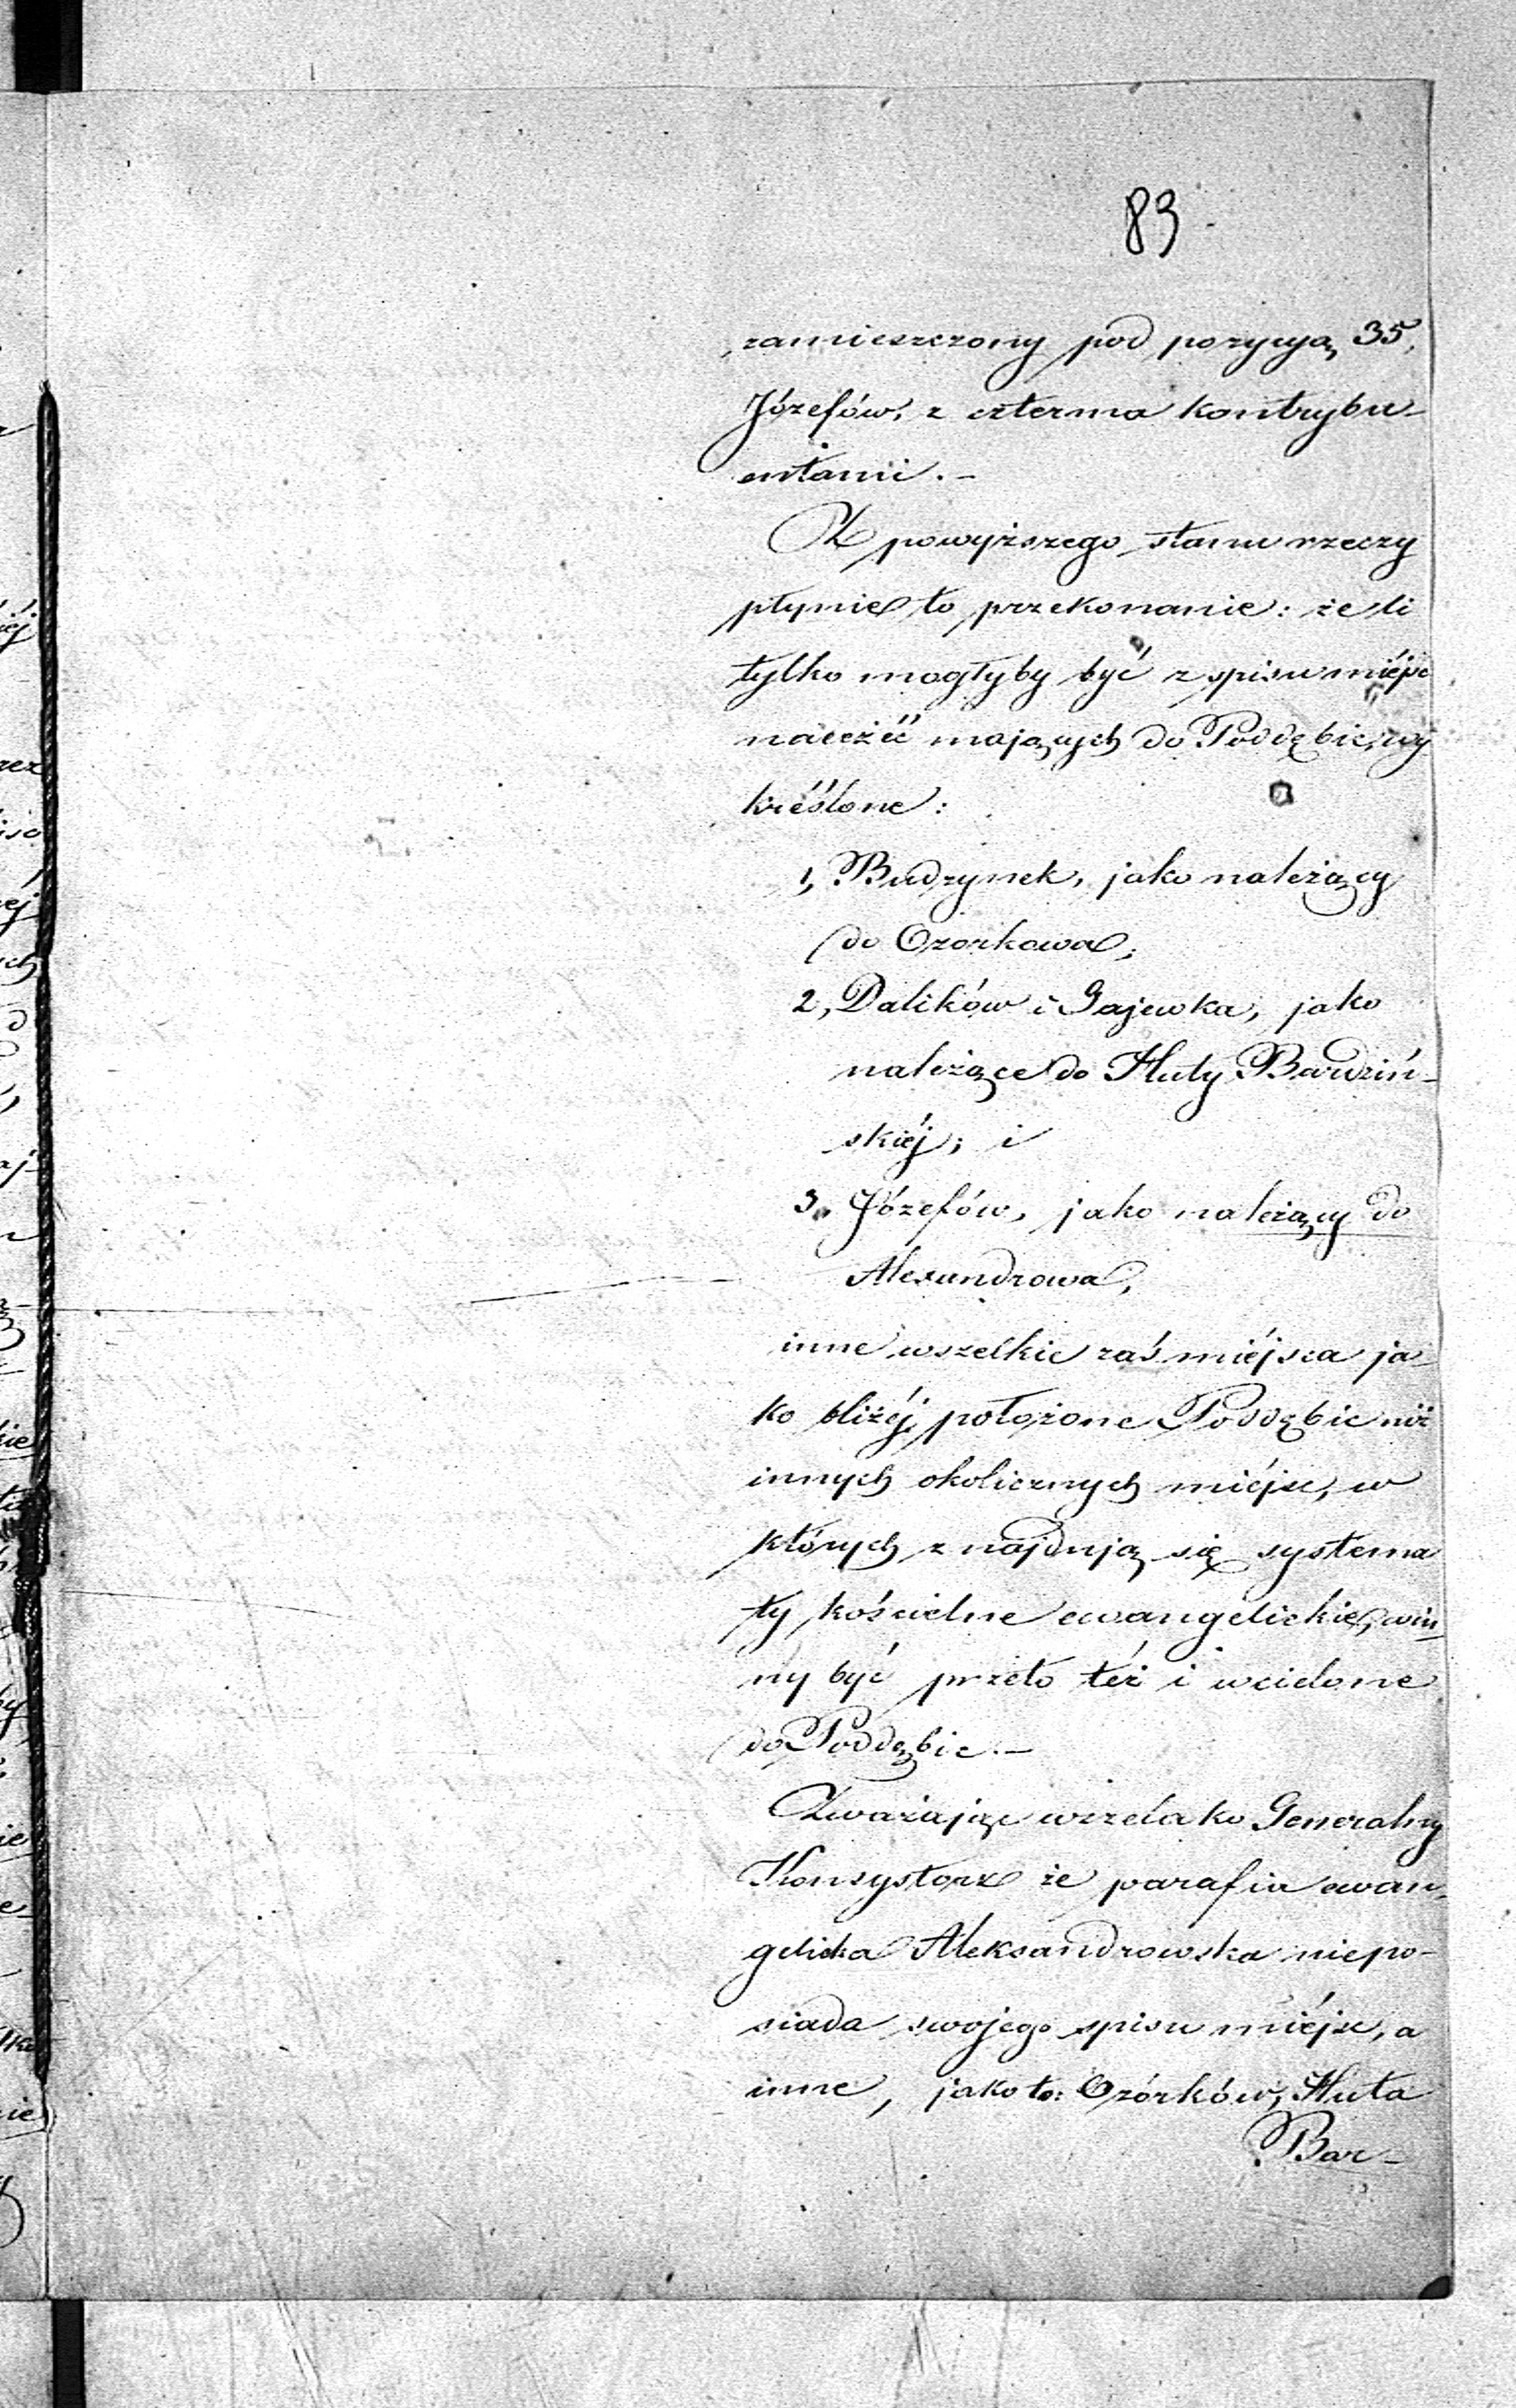 83
zamieszczony pod pozycyą 35,
Józefów, z czterma kontrybu-
entami.-
Z powyższego stanu rzeczy
płynie to przekonanie: że li
tylko mogłyby być z spisu miéjsc
należéć mających do Poddębic, wy-
kréślone:
1, Budzynek, jako należący
do Ozorkowa;
2, Dalików i Gajewka, jako
należące do Huty Bardziń-
skiéj; i
3, Józefów, jako należący do
Alexandrowa,
inne wszelkie zaś miéjsca ja-
ko bliżéj położone Poddębic niż
innych okolicznych miéjsc, w
których znajdują się systema
ty kościelne ewangelickie, win-
ny być przeto też i wcielone
do Poddębic.-
Zważając wszelako Generalny
Konsystorz że parafia ewan-
gelicka Aleksandrowska niepo-
siada swojego spisu miéjsc, a
inne, jako to: Ozórków, Huta
Bar-